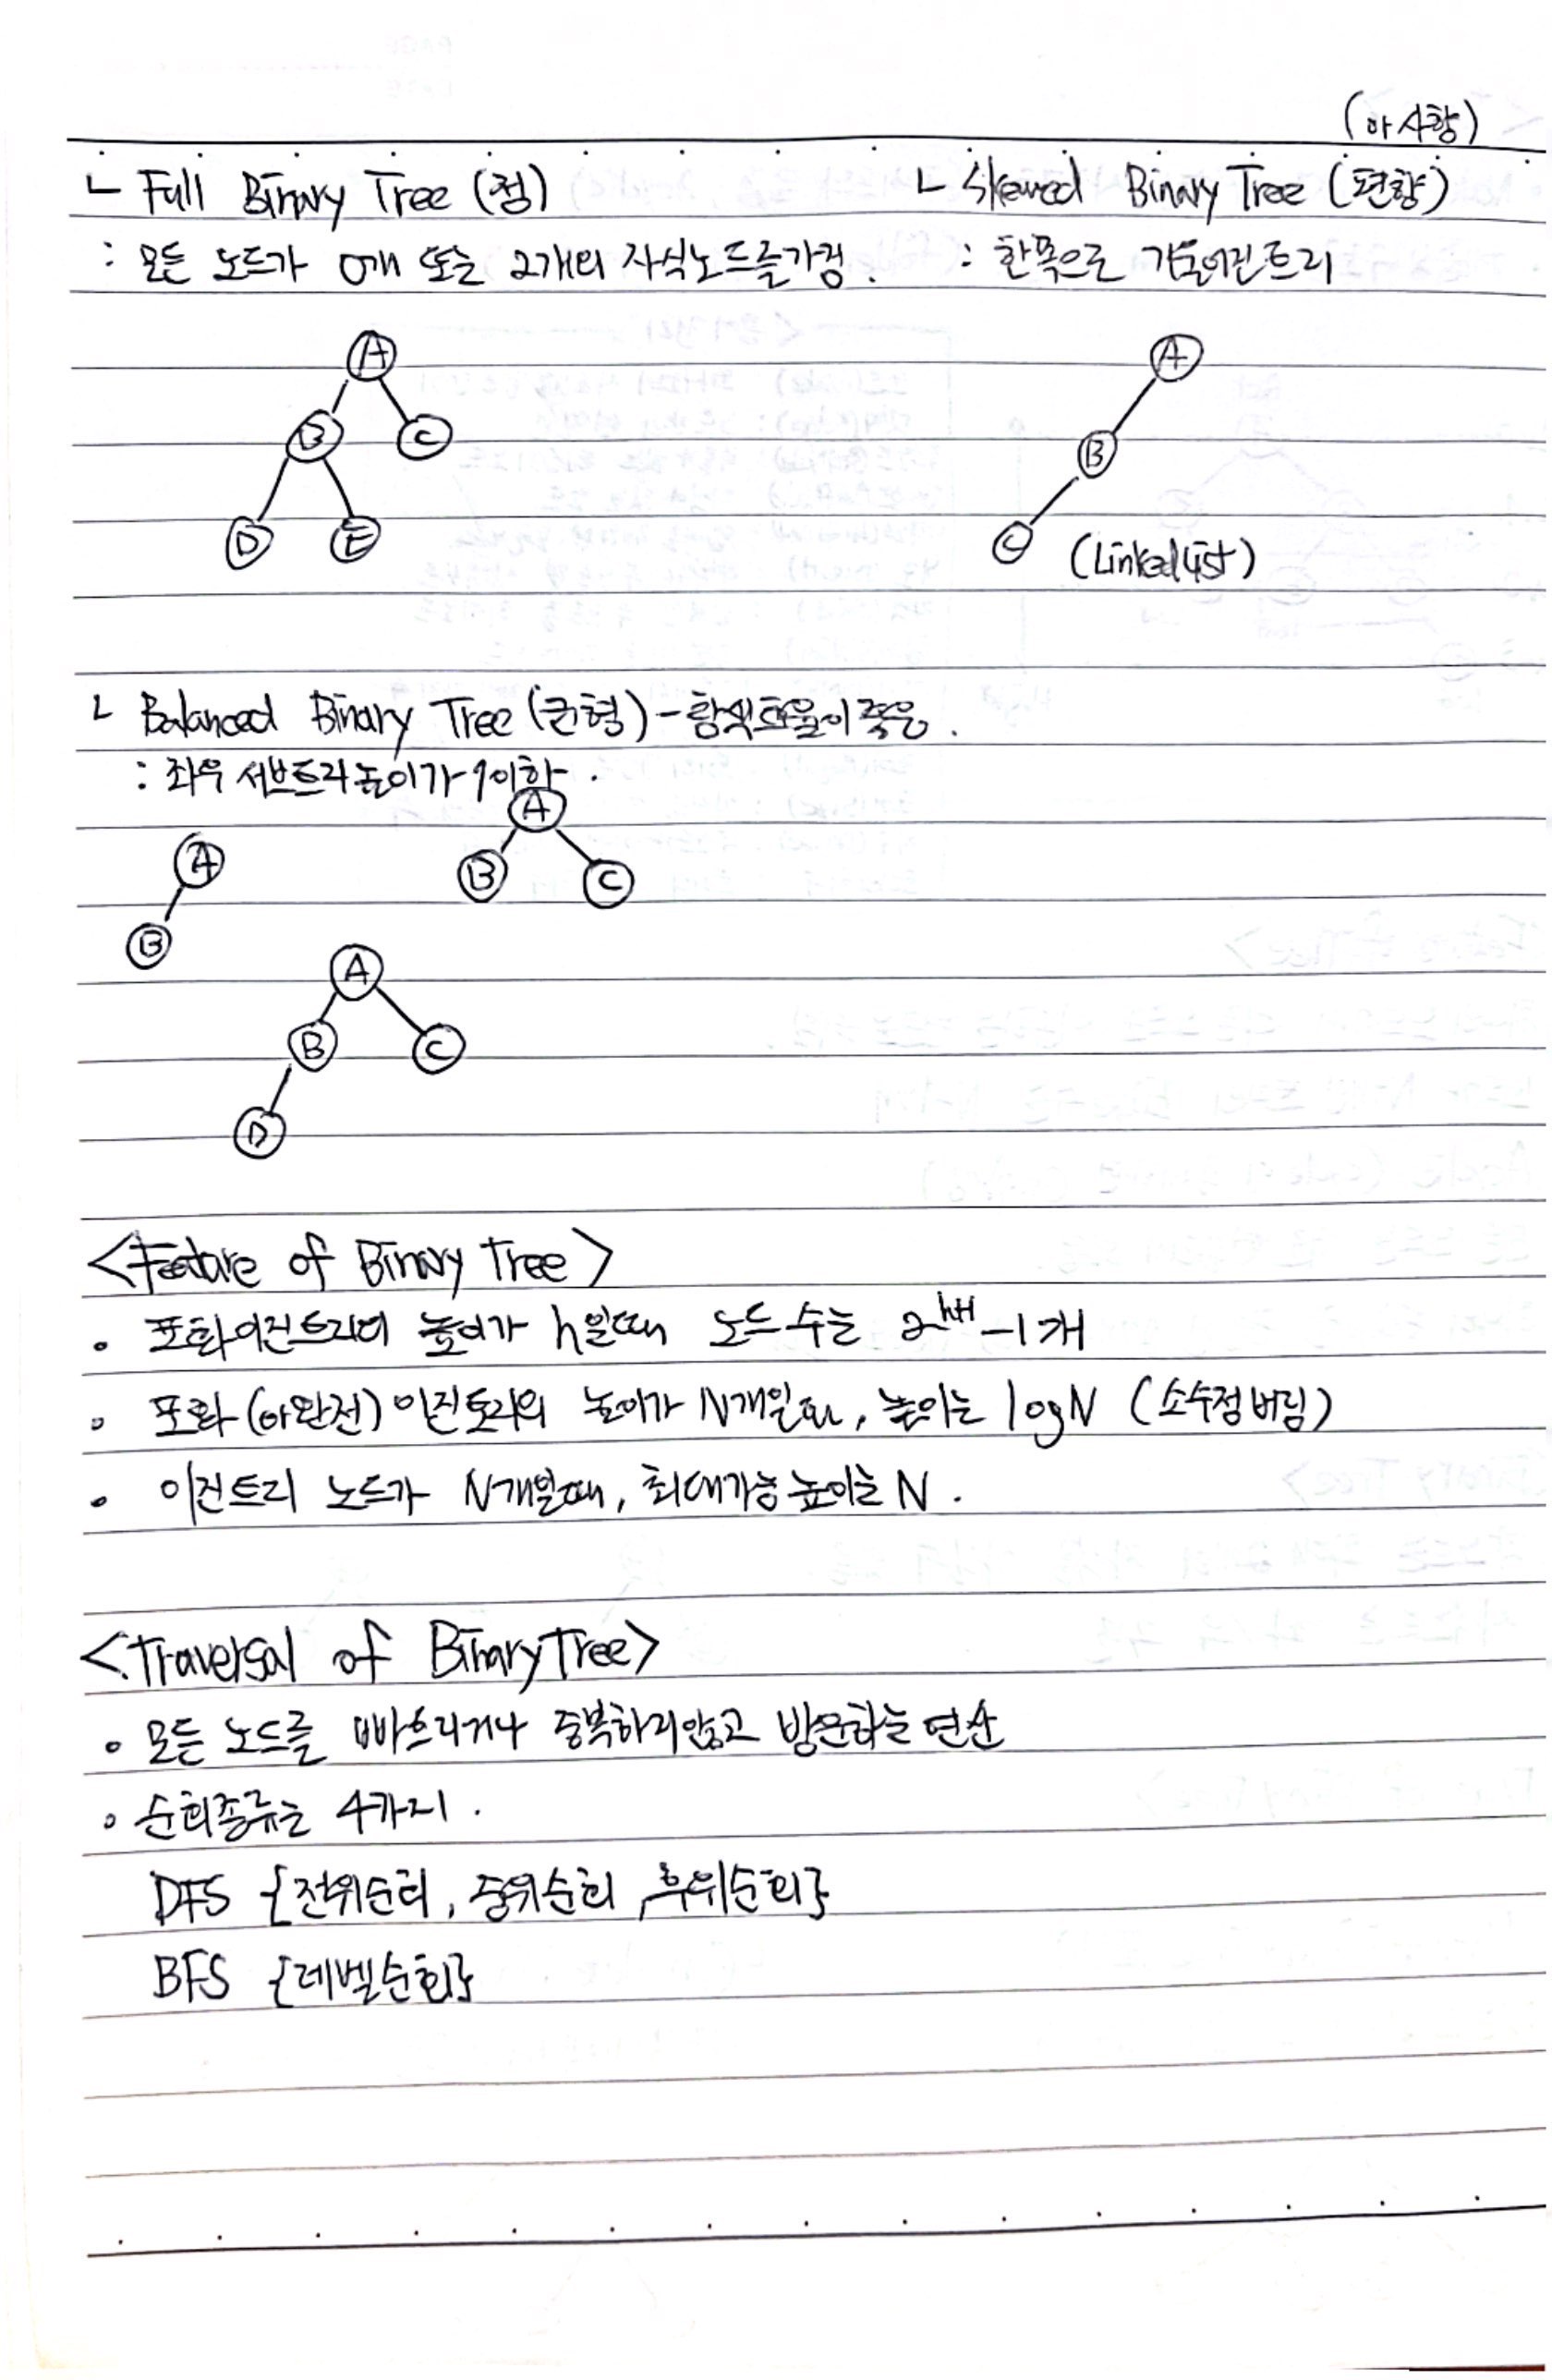 (
사향)
ㄴ Full Binary Tree (정)
: 모든 노드가 0개 또는 2개의 자식노드를가짐.
A
B C
D E
ㄴ Skewed Binary Tree (편향)
: 한쪽으로 기울어진트리
A
B
C (Linked List)
ㄴ Balanced Binary Tree (균형) -
: 좌우 서브트리높이가 1이하.
A
B
A
B C
A
B C
D
<Feature of Binary Tree>
• 포화이진트리의 높이가 h일때 노드 수는 2^h+1 -1개
• 포화(or완전) 이진트리의 높이가 N개일때, 높이는 logN (소수점버림)
• 이진트리 노드가 N개일때, 최대가능높이는 N.
<Traversal of Binary Tree>
• 모든 노드를 빠뜨리거나 중복하지않고 방문하는 연산
• 순회종류는 4가지.
DFS {전위순회, 중위순회, 후위순회}
BFS {레벨순회}